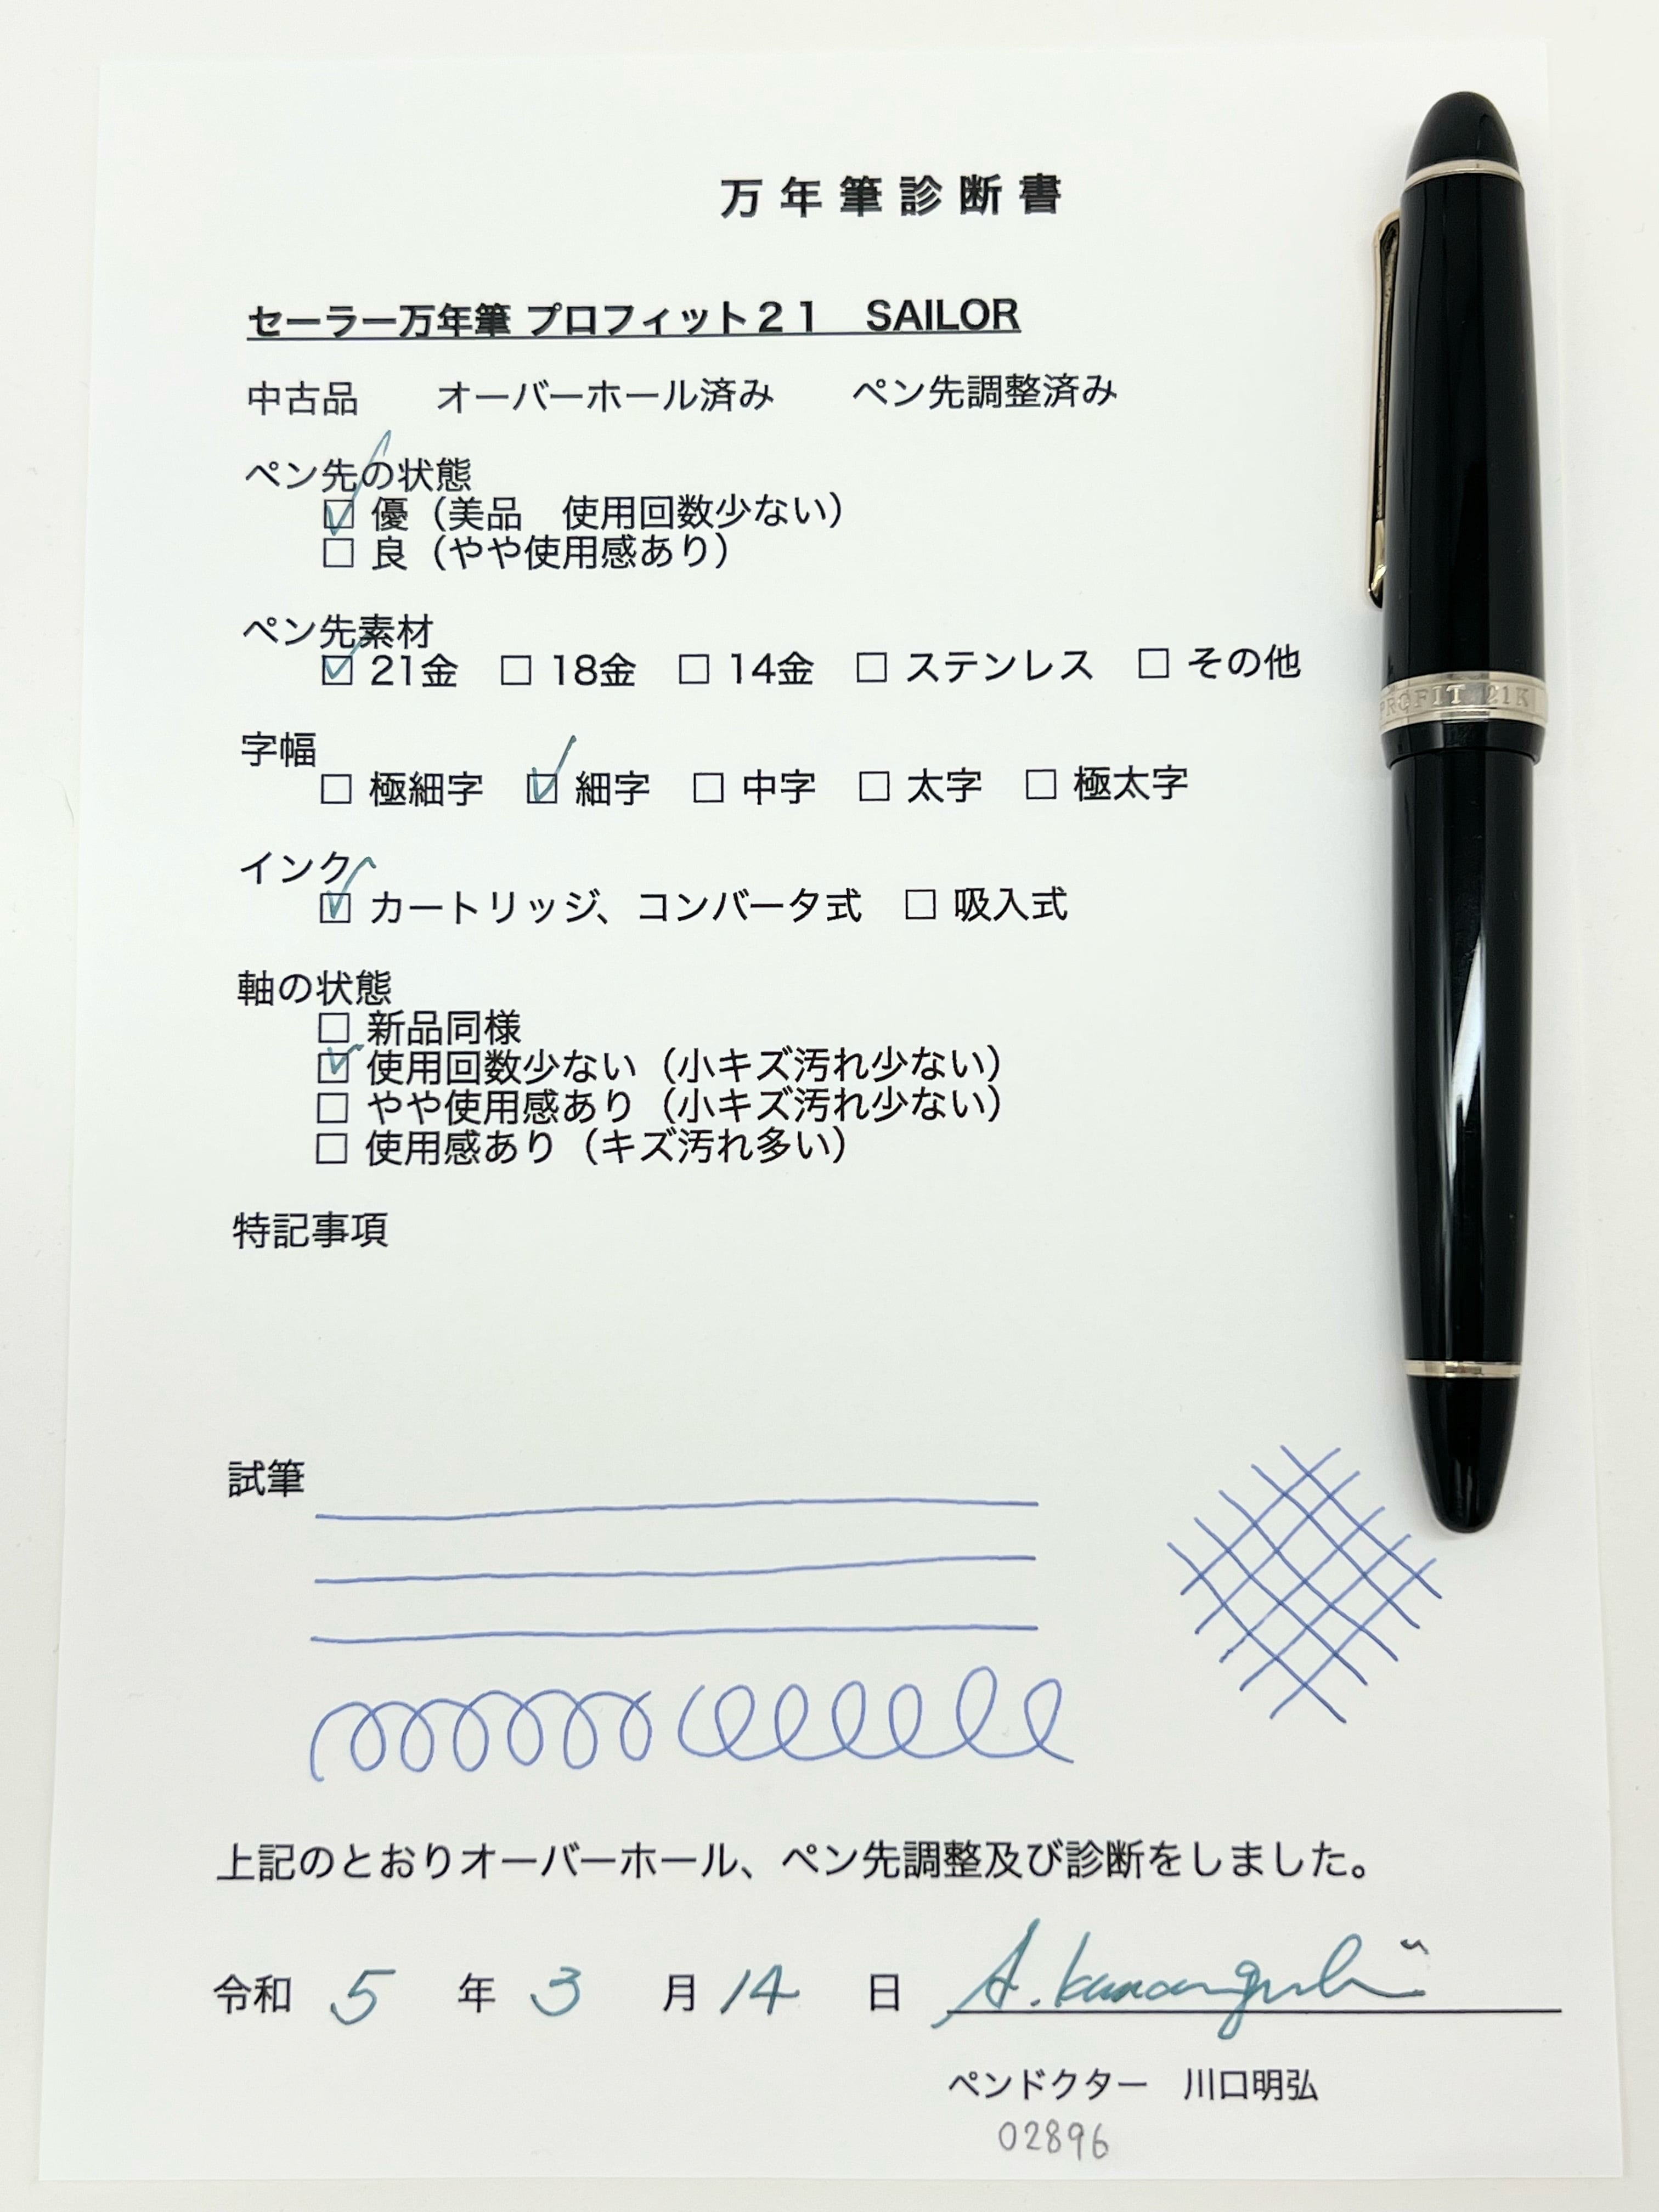 万年筆診断書
セーラー万年筆 プロフィット２１　SAILOR
中古品　　オーバーホール済み　　ペン先調整済み
ペン先の状態
☑ 優（美品　使用回数少ない）
☐ 良（やや使用感あり）
ペン先素材
☑ 21金　☐ 18金　☐ 14金　☐ ステンレス　☐ その他
字幅
☐ 極細字　☑ 細字　☐ 中字　☐ 太字　☐ 極太字
インク
☑ カートリッジ、コンバータ式　☐ 吸入式
軸の状態
☐ 新品同様
☑ 使用回数少ない（小キズ汚れ少ない）
☐ やや使用感あり（小キズ汚れ少ない）
☐ 使用感あり（キズ汚れ多い）
特記事項
試筆
上記のとおりオーバーホール、ペン先調整及び診断をしました。
令和 5 年 3 月 14 日 A. Kawaguchi
ペンドクター　川口明弘
02896
PROFIT 21K